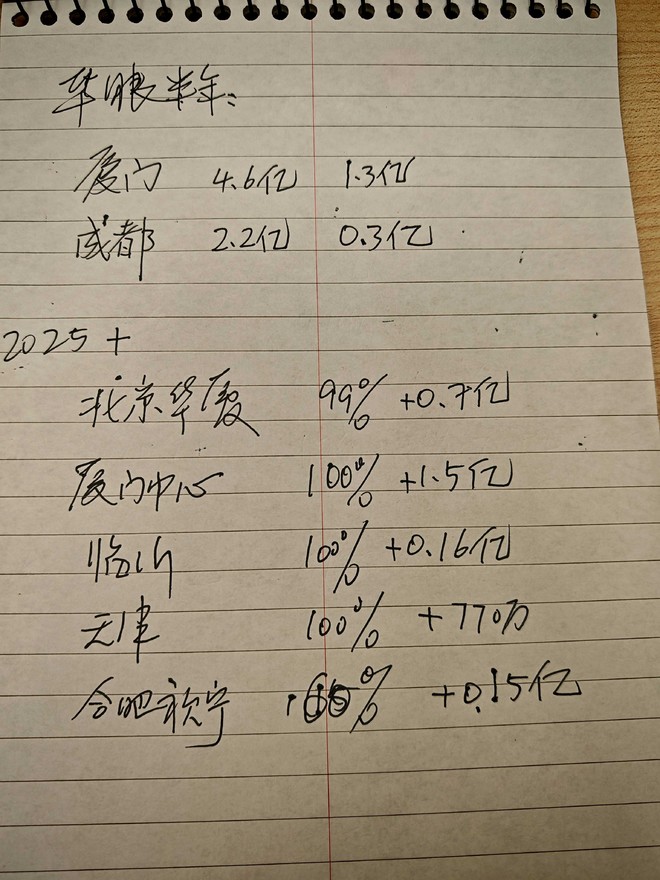 华眼半年:
厦门 4.6亿 1.3亿
成都 2.2亿 0.3亿
2025 +
北京华厦 99% +0.7亿
厦门中心 100% +1.5亿
临沂 100% +0.16亿
天津 100% +770万
合肥视宁 % +0.15亿